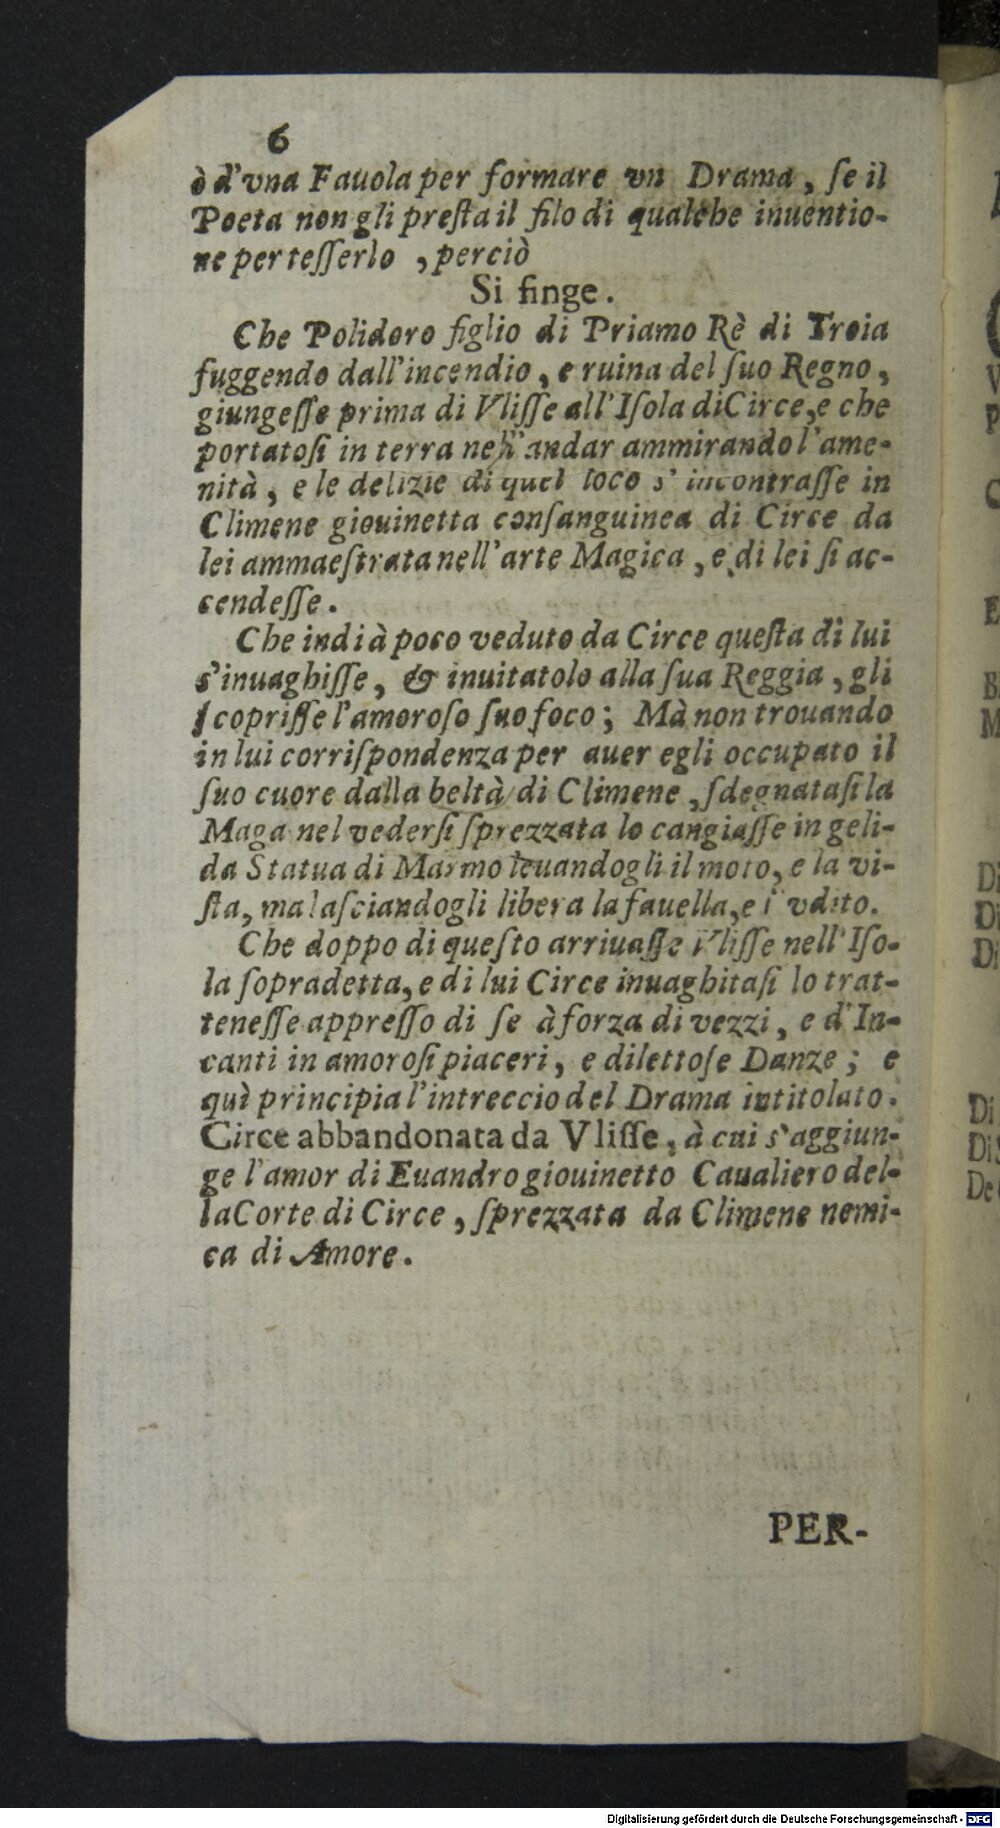 6
ò d'vna Fauola per formare vn Drama, ſe il
Poeta non gli preſta il filo di qualche inuentio-
ne per teſſerlo, perciò
Si finge.
Che Polidoro figlio di Priamo Rè di Troia
fuggendo dall'incendio, e ruina del ſuo Regno,
giungeſſe prima di Vliſſe all'Iſola di Circe, e che
portatoſi in terra nell'andar ammirando l'ame-
nità, e le delizie di quel loco s'incontraſſe in
Climene giouinetta conſanguinea di Circe da
lei ammaeſtrata nell'arte Magica, e di lei ſi ac-
cendeſſe.
Che indi à poco veduto da Circe queſta di lui
s'inuaghiſſe, & inuitatolo alla ſua Reggia, gli
ſcopriſſe l'amoroſo ſuo foco; Mà non trouando
in lui corriſpondenza per auer egli occupato il
ſuo cuore dalla beltà di Climene, ſdegnataſi la
Maga nel vederſi ſprezzata lo cangiaſſe in geli-
da Statua di Marmo leuandogli il moto, e la vi-
ſta, ma laſciandogli libera la fauella, e l'vdito.
Che doppo di queſto arriuaſſe Vliſſe nell'Iſo-
la ſopradetta, e di lui Circe inuaghitaſi lo trat-
teneſſe appreſſo di ſe à forza di vezzi, e d'In-
canti in amoroſi piaceri, e dilettoſe Danze; e
quì principia l'intreccio del Drama intitolato.
Circe abbandonata da Vliſſe, à cui s'aggiun-
ge l'amor di Euandro giouinetto Caualiero del-
la Corte di Circe, ſprezzata da Climene nemi-
ca di Amore.
PER-
Digitalisierung gefördert durch die Deutsche Forschungsgemeinschaft - DFG